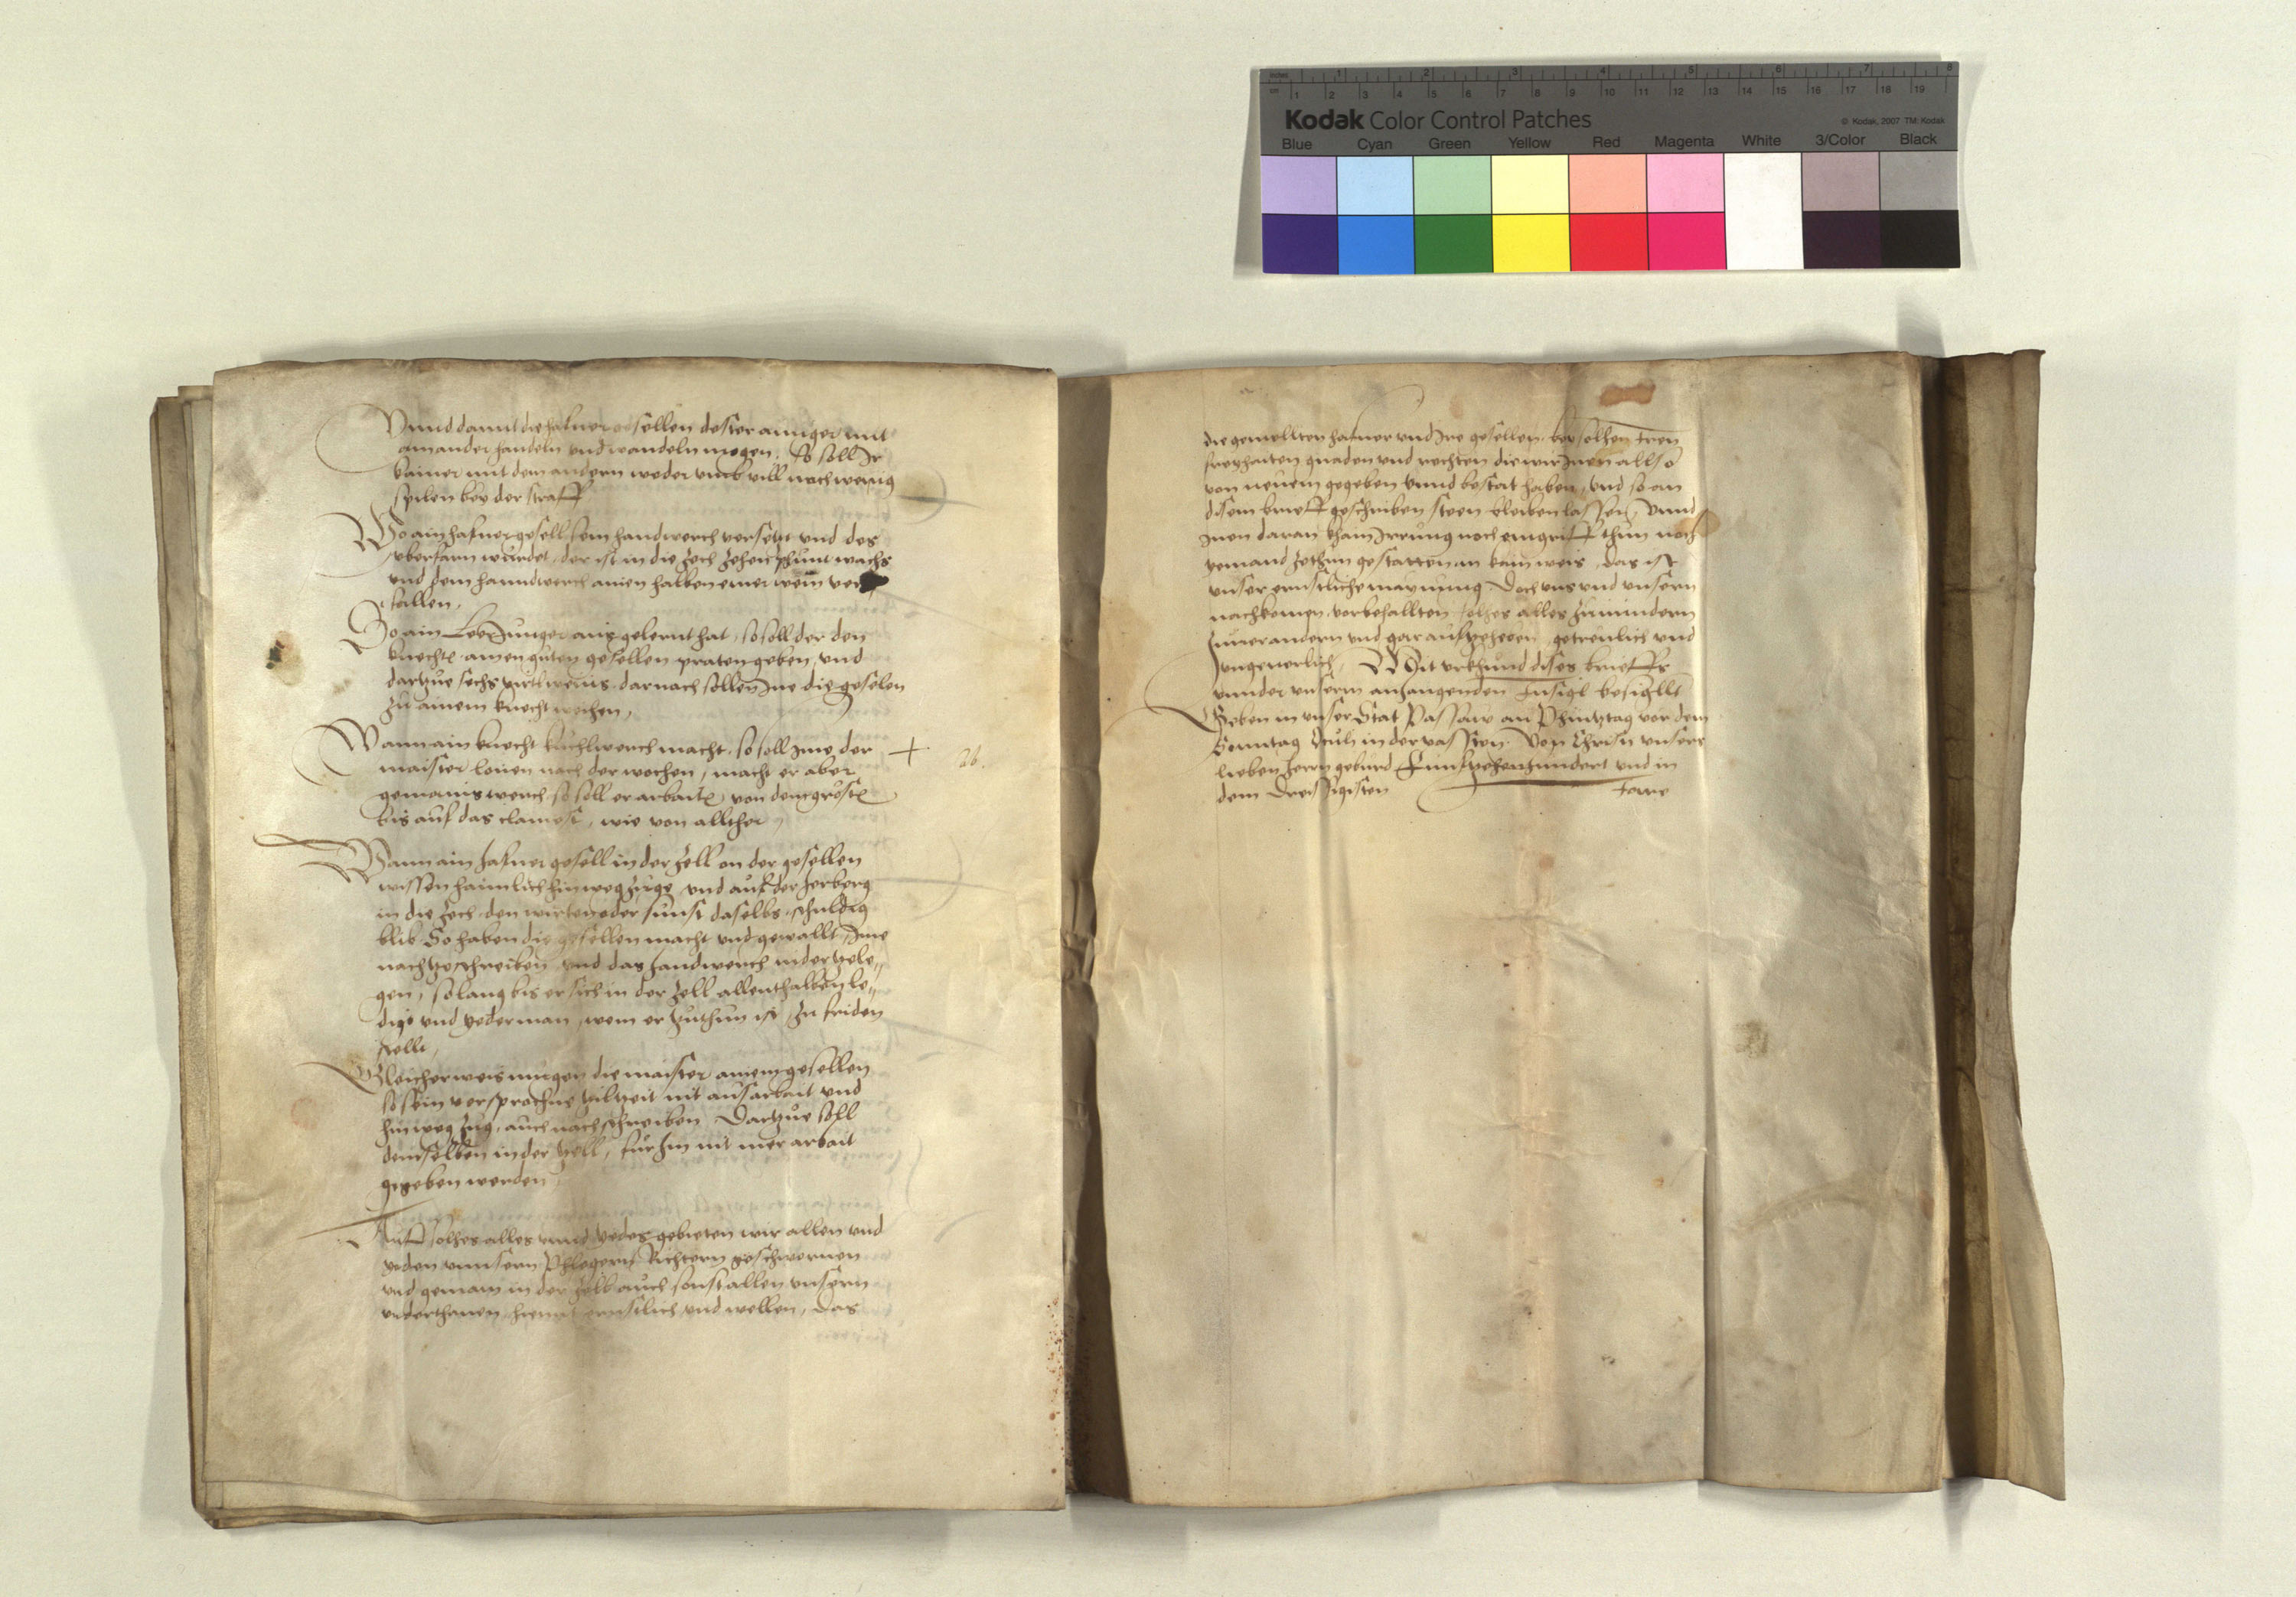 Vnnd damit die hafner gesellen dester ainiger mit
ainander handeln vnd wandeln mogen. So soll Ir
kainer mit dem andern weder vmb vill noch wenig
spilen bey der straff
Wo ain hafner gesell sein handwerch versetzt vnd des
vberfarn wurdet, der ist in die Zech Zehen phunt wachs
vnd dem hanndwerch ainen halben emer wein ver
fallen,
So ain Leer Junger aus gelernt hat, so soll der den
knechtn ainen guten gesellen praten geben, vnd
dartzue sechs virtl weins, darnach sollen Ine die geselen
zu ainem knecht machen,
Wann ain knecht kuchlwerch macht, so soll Ime der
maister lonen nach der wochen, macht er aber
gemains werch so soll er arbaitn von dem grostn
bis auf das clainest, wie von allther,
26.
Wann ain hafner gesell in der Zell on der gesellen
wissen haimlich hinweg zuge vnd auf der herberg
in die Zech den wirten oder sunst daselbs schuldig
blib So haben die gesellen macht vnd gewallt Ime
nachtzeschreiben vnd das handwerch niderzele„
gen, solang bis er sich in der Zell allenthalben le„
dige vnd yederman, wem er zuthun ist, zu friden
stellt,
Gleicherweis mugen die maister ainem gesellen
so sein versprochne zilzeit nit ausarbait vnd
hinweg zug, auch nachschreiben Dartzue soll
demselben in der Zell, fur hin nit mer arbait
gegeben werden
Auff solhes alles vnnd yedes gebieten wir allen vnd
yeden vnnsern Phlegern Richtern geschwornen
vnd gemain in der Zell auch sonst allen vnsern
vnderthanen hiemit ernstlich vnd wellen, das
die gemellten hafner vnd Ire gesellen bey solhen Iren
freyhaiten gnaden vnd rechten die wir Inen also
von neuem gegeben vnnd bestat haben, vnd so an
disem brieff geschriben steen bleiben lassen, vnnd
Inen daran khain Irrung noch eingriff thun noch
yemand zethun gestatten in kain weis, das ist
vnser ernstliche maynung Doch vns vnd vnsern
nachkomen vorbehallten solhes alles zumindern
zuuerandern vnd gar aufzeheben getreulich vnd
vngeuerlich, Mit vrkhund dises brieffs
vnnder vnserm anhangenden Insigl besigllt
Geben in vnser Stat Passaw an Phintztag vor dem
Sonntag in der vassten Von Christi vnsers
lieben herrn geburd Funfzehenhundert vnd in
dem Dreissigisten Jarre